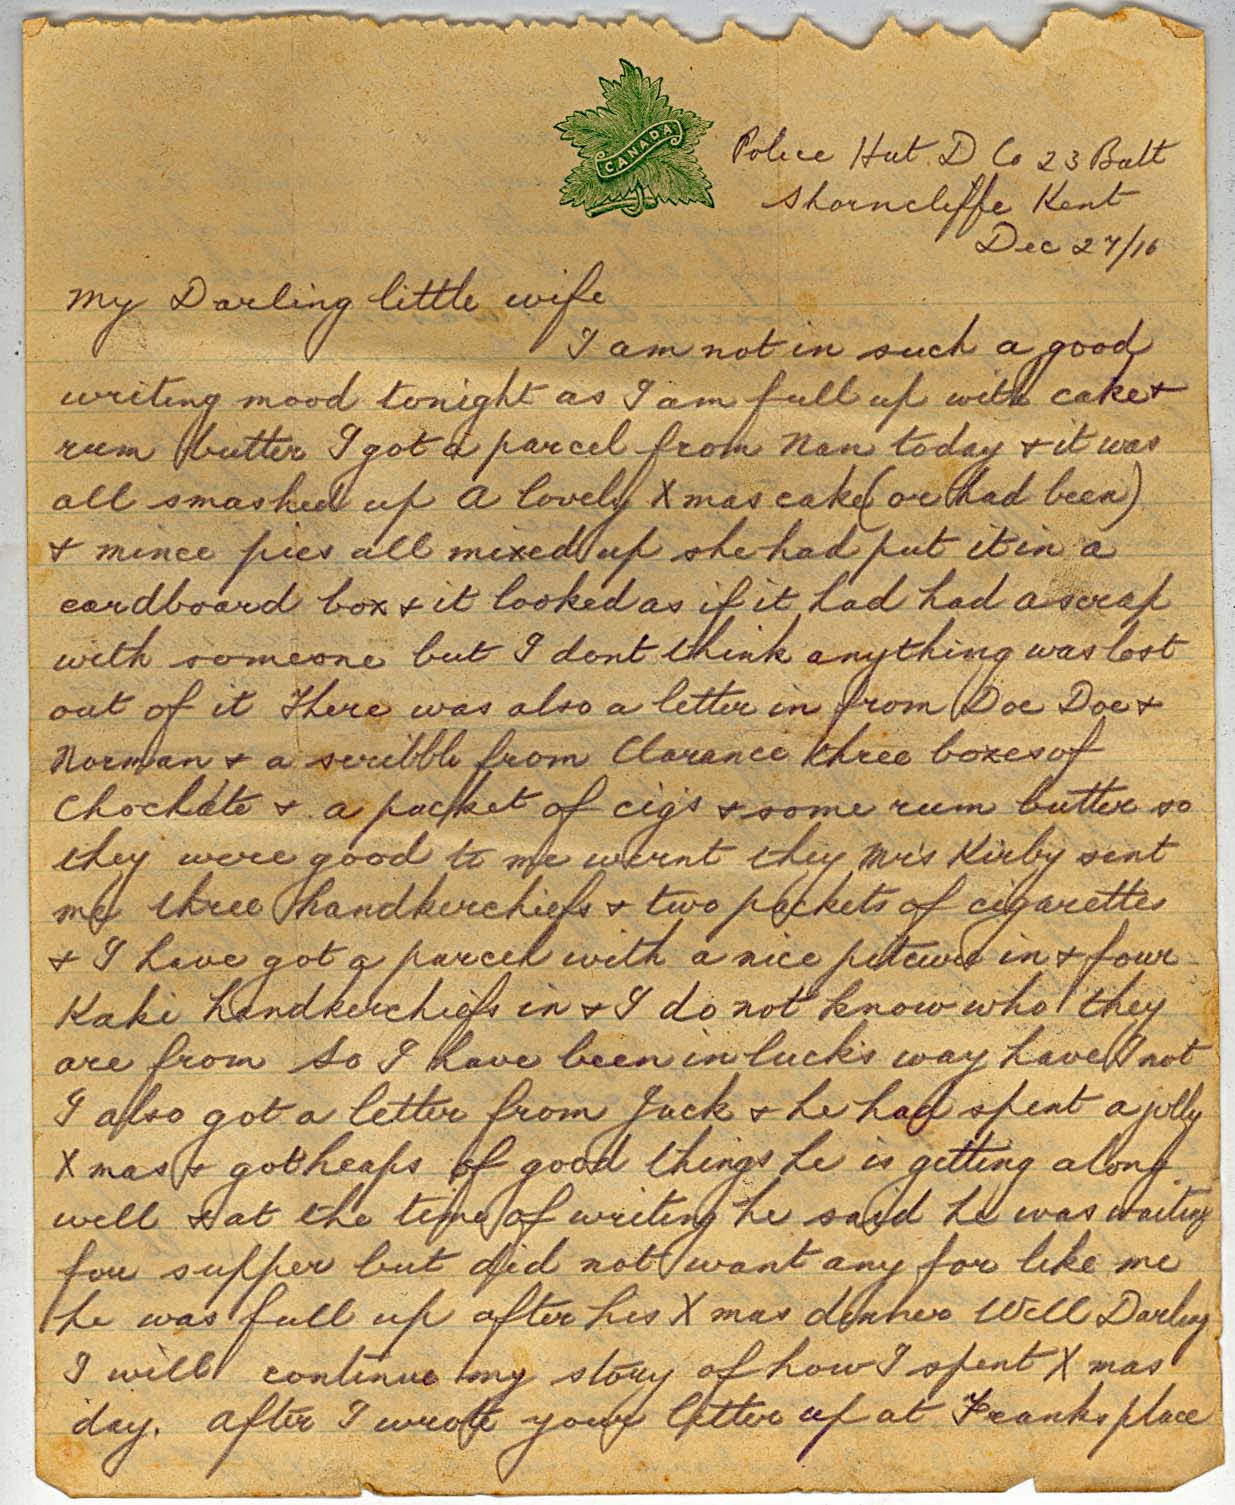 CANADA
Police Hut D Co 23 Batt
Shorncliffe Kent
Dec 27/16
My Darling little wife
I am not in such a good
writing mood tonight as I am full up with cake &
rum butter I got a parcel from Nan today & it was
all smashed up A lovely Xmas cake (or had been)
& mince pies all mixed up she had put it in a
cardboard box & it looked as if it had had a scrap
with someone but I dont think anything was lost
out of it There was also a letter in from Doe Doe &
Norman & a scribble from Clarance three boxes of
Choclate & a packet of cigs & some rum butter so
they were good to me wernt they Mrs Kirby sent
me three handkerchiefs & two packets of cigarettes
& I have got a parcel with a nice in & four
Kaki handkerchiefs in & I do not know who they
are from So I have been in lucks way have I not
I also got a letter from Jack & he had spent a jolly
Xmas & got heaps of good things he is getting along
well & at the time of writing he said he was waiting
for supper but did not want any for like me
he was full up after his Xmas dinner Well Darling
I will continue my story of how I spent Xmas
day. After I wrote your letter up at Franks place